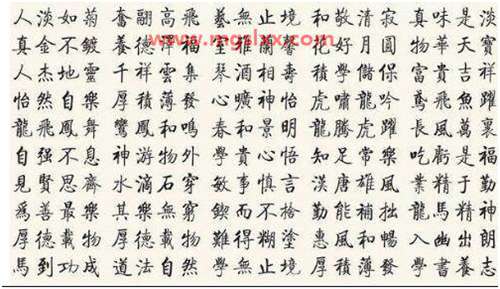 人淡如菊 奮翮高飛 藝無止境 和敬清寂 真味是淡
www.mgslxx.com
真金不鍍 養德 福 室雅蘭 花好月圓 物華天寶
人杰地靈 千祥雲集 琴 壽 學儲 富貴吉祥
怡然自樂 厚積薄發 心曠神怡 虎嘯龍吟 鳶飛魚躍
龍飛鳳舞 鸞鳳和鳴 春和景明 龍騰虎躍 長風萬裏
自强不息 神游物外 學貴心悟 知足常樂 吃虧是福
見賢思齊 水滴石穿 敏事慎言 漢唐雄風 業精于勤
爲善最樂 其樂無窮 鍥而不捨 勤能補拙 龍馬精神
厚德載物 厚德載物 難得糊塗 惠風和暢 入幽出朗
馬到功成 道法自然 學無止境 厚積薄發 學書養志